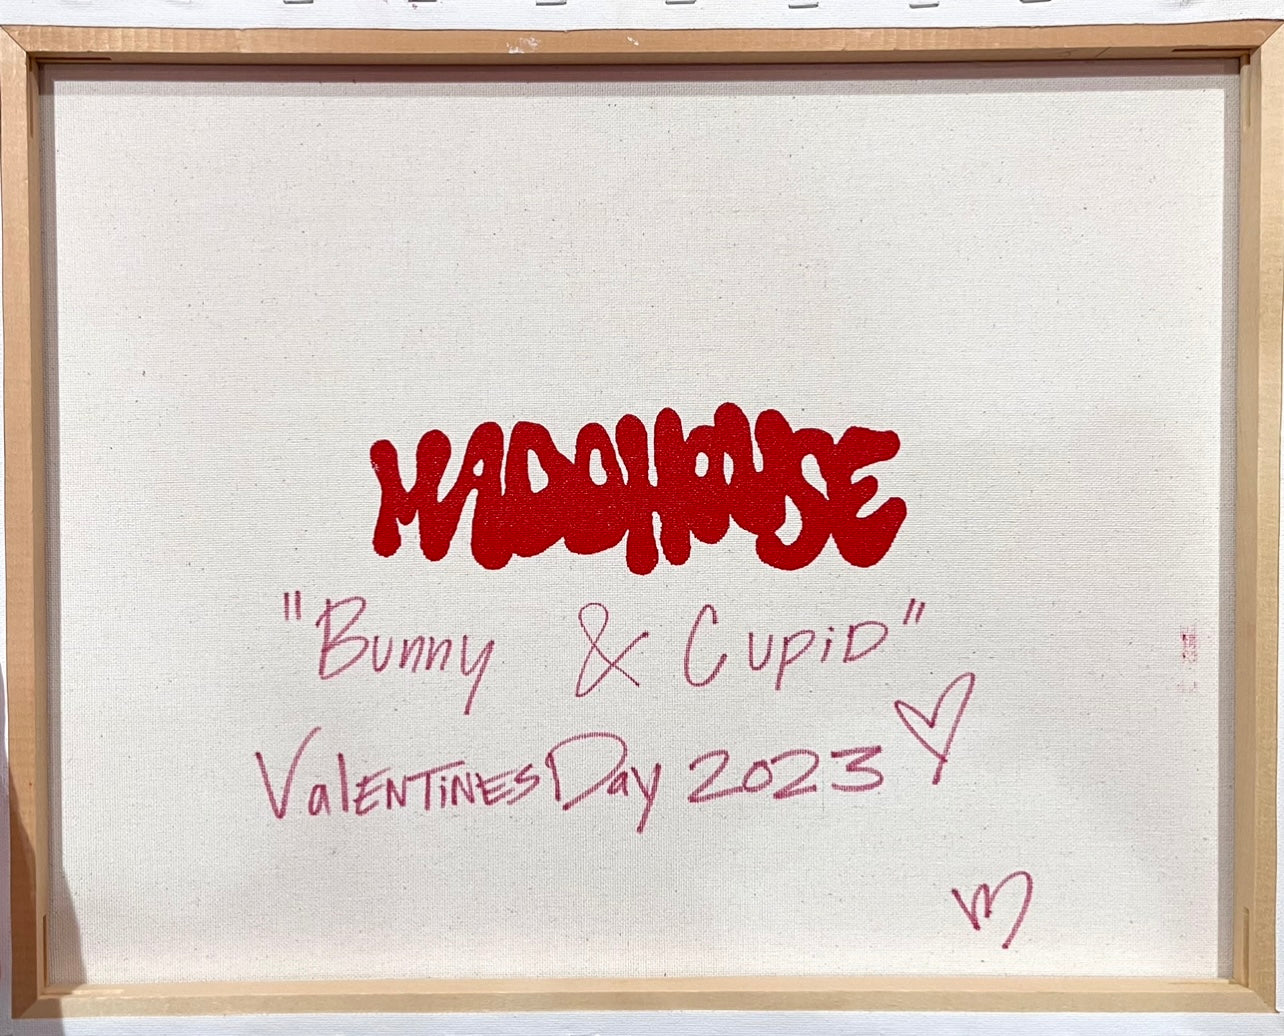 MADDHOUSE
"Bunny & Cupid"
Valentines Day 2023
m